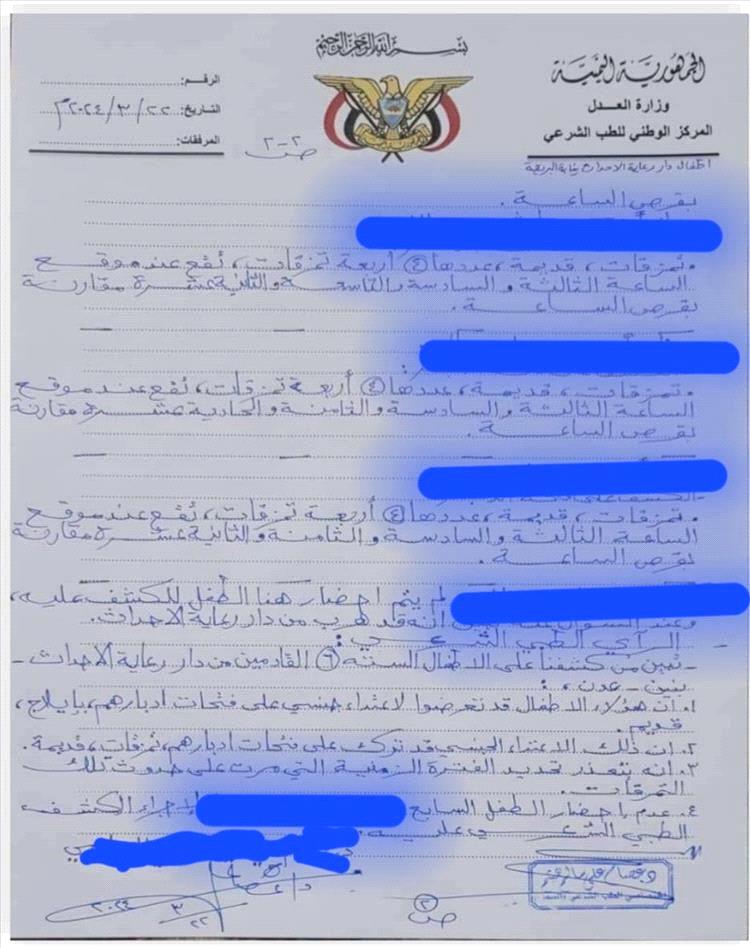 بسم الله الرحمن الرحيم
الجمهورية اليمنية
وزارة العدل
المركز الوطني للطب الشرعي
الرقم:
التاريخ: ٢٢/٣/٢٠٢٤م
المرفقات:
ص ٢-٢
اطفال دار رعاية الاحداث نيابة البريقة
بقرص الساعة.
وتمزقات، قديمة، عددها ④ أربعة تمزقات، تقع عند موقع
الساعة الثالثة والسادسة والتاسعة والثانية عشرة مقارنة
بقرص الساعة.
وتمزقات، قديمة، عددها ④ أربعة تمزقات، تقع عند موقع
الساعة الثالثة والسادسة والثامنة والحادية عشرة مقارنة
بقرص الساعة.
وتمزقات، قديمة، عددها ④ أربعة تمزقات، تقع عند موقع
الساعة الثالثة والسادسة والثامنة والثانية عشرة مقارنة
بقرص الساعة.
لم يتم احضار هذا الطفل للكشف عليه،
وعند السؤال عنه انه قد هرب من دار رعاية الاحداث.
- الرأي الطبي الشرعي:
- تبين من كشفنا على الاطفال الستة ⑥ القادمين من دار رعاية الأحداث -
بنين - عدن،:
١. ان هؤلاء الاطفال قد تعرضوا لاعتداء جنسي على فتحات ادبارهم، بإيلاج،
قديم.
٢. ان ذلك الاعتداء الجنسي قد ترك على فتحات ادبارهم، تمزقات، قديمة.
٣. انه يتعذر تحديد الفترة الزمنية التي مرت على حدوث تلك
التمزقات.
٤. عدم إحضار الطفل السابع لإجراء الكشف
الطبي الشرعي عليه.
٢٢/٣/٢٠٢٤
ص ②